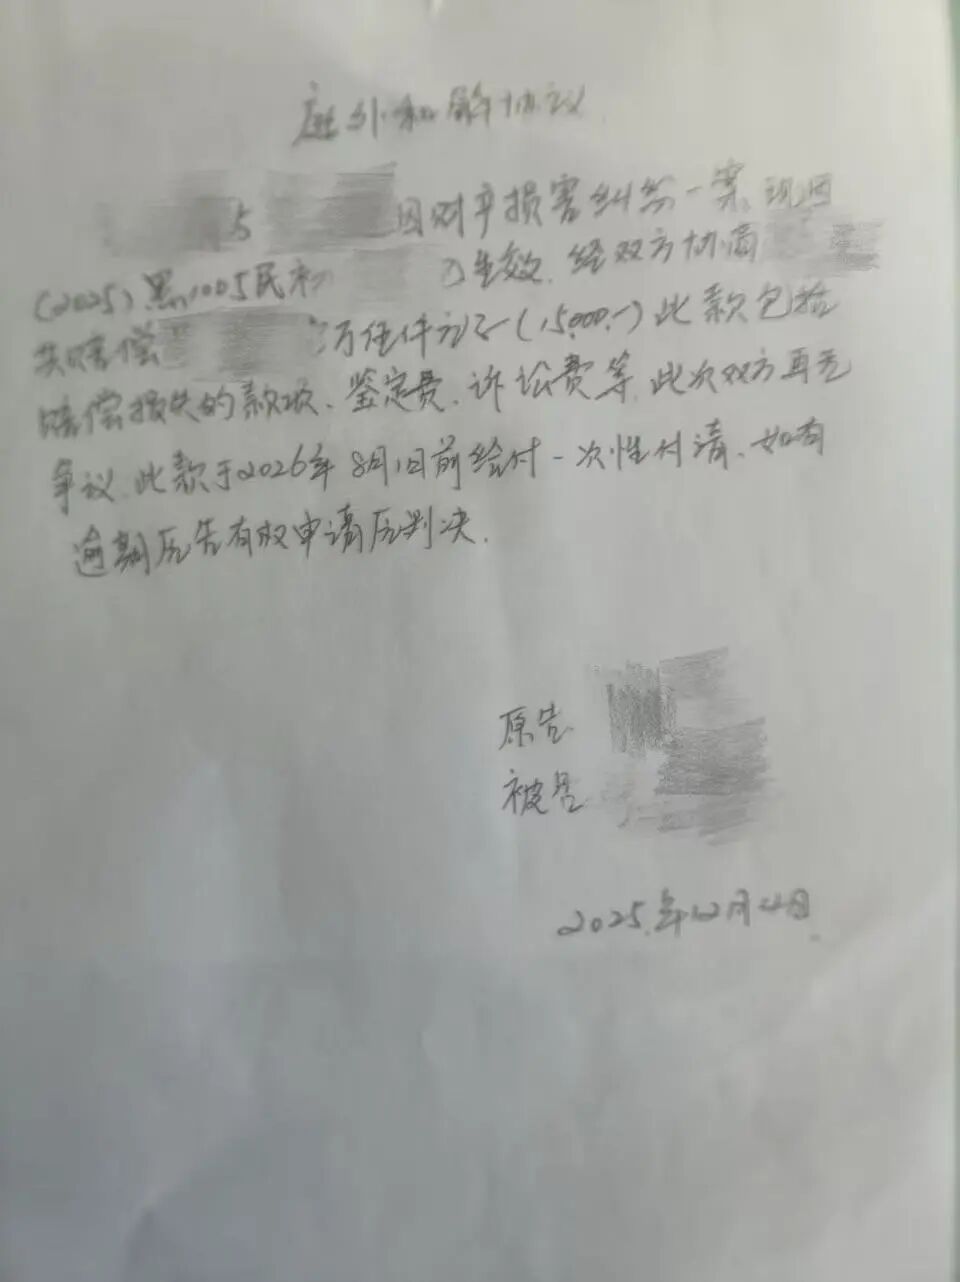 庭外和解协议
与 因财产损害纠纷一案,现因
(2025)黑1005民初 已生效,经双方协商
共赔偿 万伍仟元整(15,000.-)此款包括
赔偿损失的款项、鉴定费、诉讼费等,此次双方再无
争议,此款于2026年8月1日前给付一次性付清、如有
逾期原告有权申请原判决.
原告
被告
2025.年12月4日.